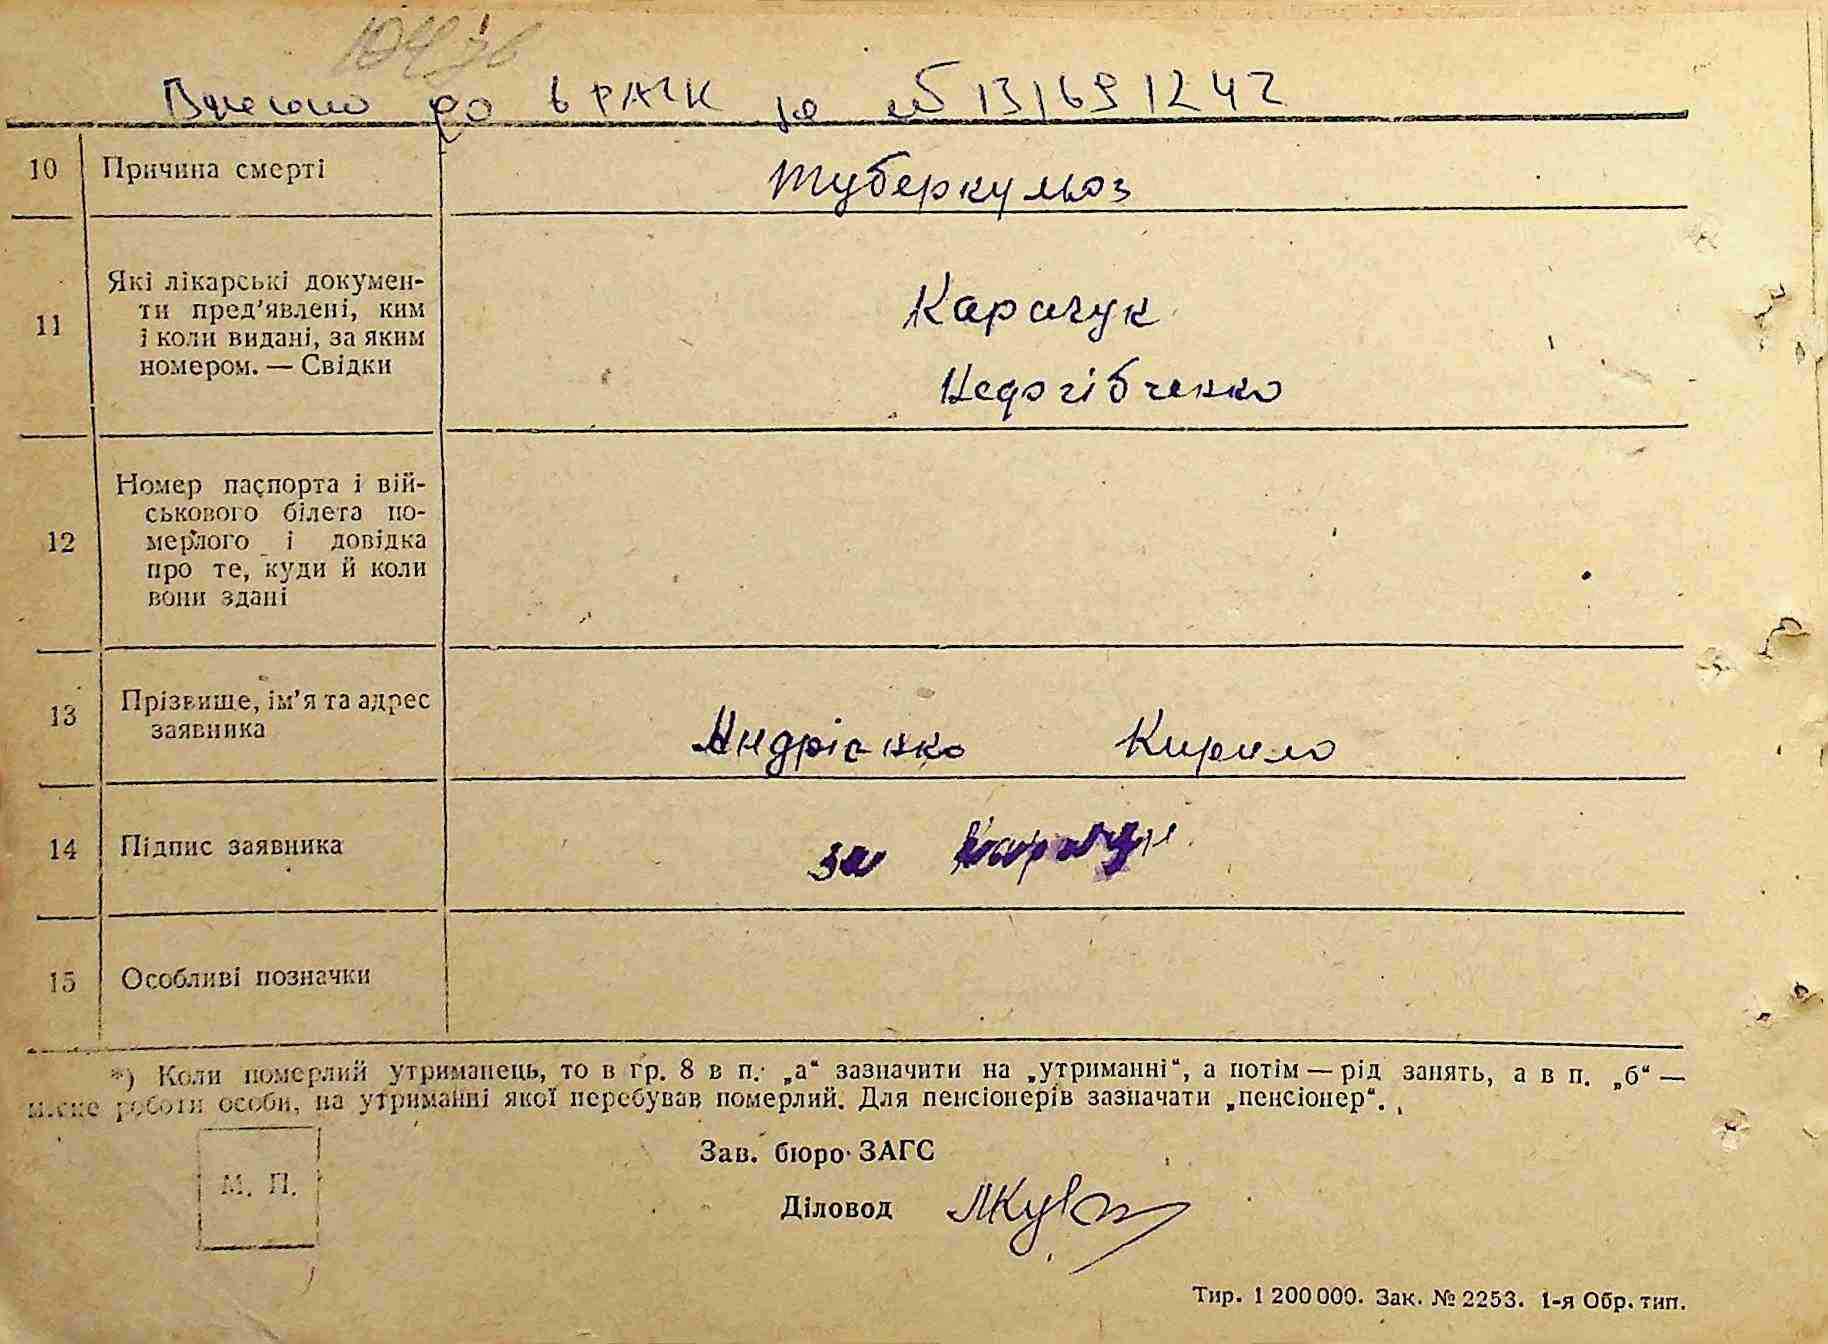 Внесено до ДРАЦС за № 131691242
10 Причина смерті
Туберкульоз
11 Які лікарські докумен-
ти пред'явлені, ким
і коли видані, за яким
номером. — Свідки
Карачук
Недогібченко
12 Номер паспорта і вій-
ськового білета по-
мерлого і довідка
про те, куди й коли
вони здані
13 Прізвище, ім'я та адрес
заявника
Андрієнко Кирило
14 Підпис заявника
за
15 Особливі позначки
*) Коли померлий утриманець, то в гр. 8 в п. „а“ зазначити на „утриманні“, а потім — рід занять, а в п. „б“ —
місце роботи особи, на утриманні якої перебував померлий. Для пенсіонерів зазначати „пенсіонер“.
Зав. бюро ЗАГС
М. П.
Діловод
Тир. 1 200 000. Зак. № 2253. 1-я Обр. тип.